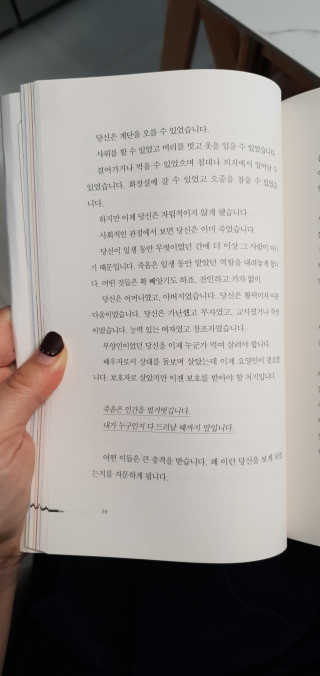 당신은 계단을 오를 수 있었습니다.
샤워를 할 수 있었고 머리를 빗고 옷을 입을 수 있었습니다.
걸어가거나 먹을 수 있었으며 침대나 의자에서 일어날 수
있었습니다. 화장실에 갈 수 있었고 오줌을 참을 수 있었습
니다.
하지만 이제 당신은 자립적이지 않게 됐습니다.
사회적인 관점에서 보면 당신은 이미 죽었습니다.
당신이 일생 동안 무엇이었건 간에 더 이상 그 사람이 아니
기 때문입니다. 죽음은 일생 동안 맡았던 역할을 내려놓게 합니
다. 어떤 것들은 확 빼앗기도 하죠, 잔인하고 가차 없이.
당신은 어머니였고, 아버지였습니다. 당신은 활력이자
다움이었습니다. 당신은 가난했고 부자였고, 교사였거나
이었습니다. 능력 있는 여자였고 창조자였습니다.
부양인이었던 당신을 이제 누군가 먹여 살려야 합니다.
배우자로서 상대를 돌보며 살았는데 이제 요양인이 필요합
니다. 보호자로 살았지만 이젠 보호를 받아야 할 처지입니다.
죽음은 인간을 벌거벗깁니다.
내가 누구인지 다 드러날 때까지 말입니다.
어떤 이들은 큰 충격을 받습니다. 왜 이런 당신을 보게
는지를 자문하게 됩니다.